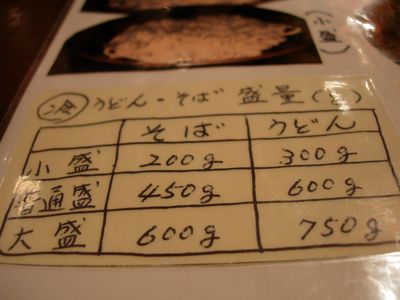 (小盛)
冷 うどん・そば 盛量(g)
そば うどん
小盛 200g 300g
普通盛 450g 600g
大盛 600g 750g